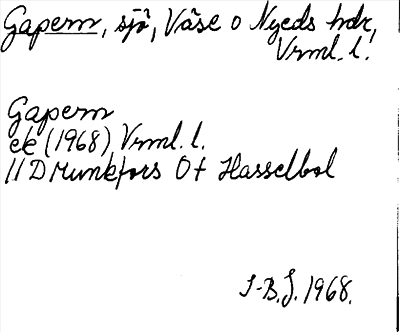 Gapern, sjö, Väse o Nyeds hdr,
Vrml. l.
Gapern
ek (1968) Vrml. l.
11 D Munkfors Ot Hasselbol
I-B.J. 1968.